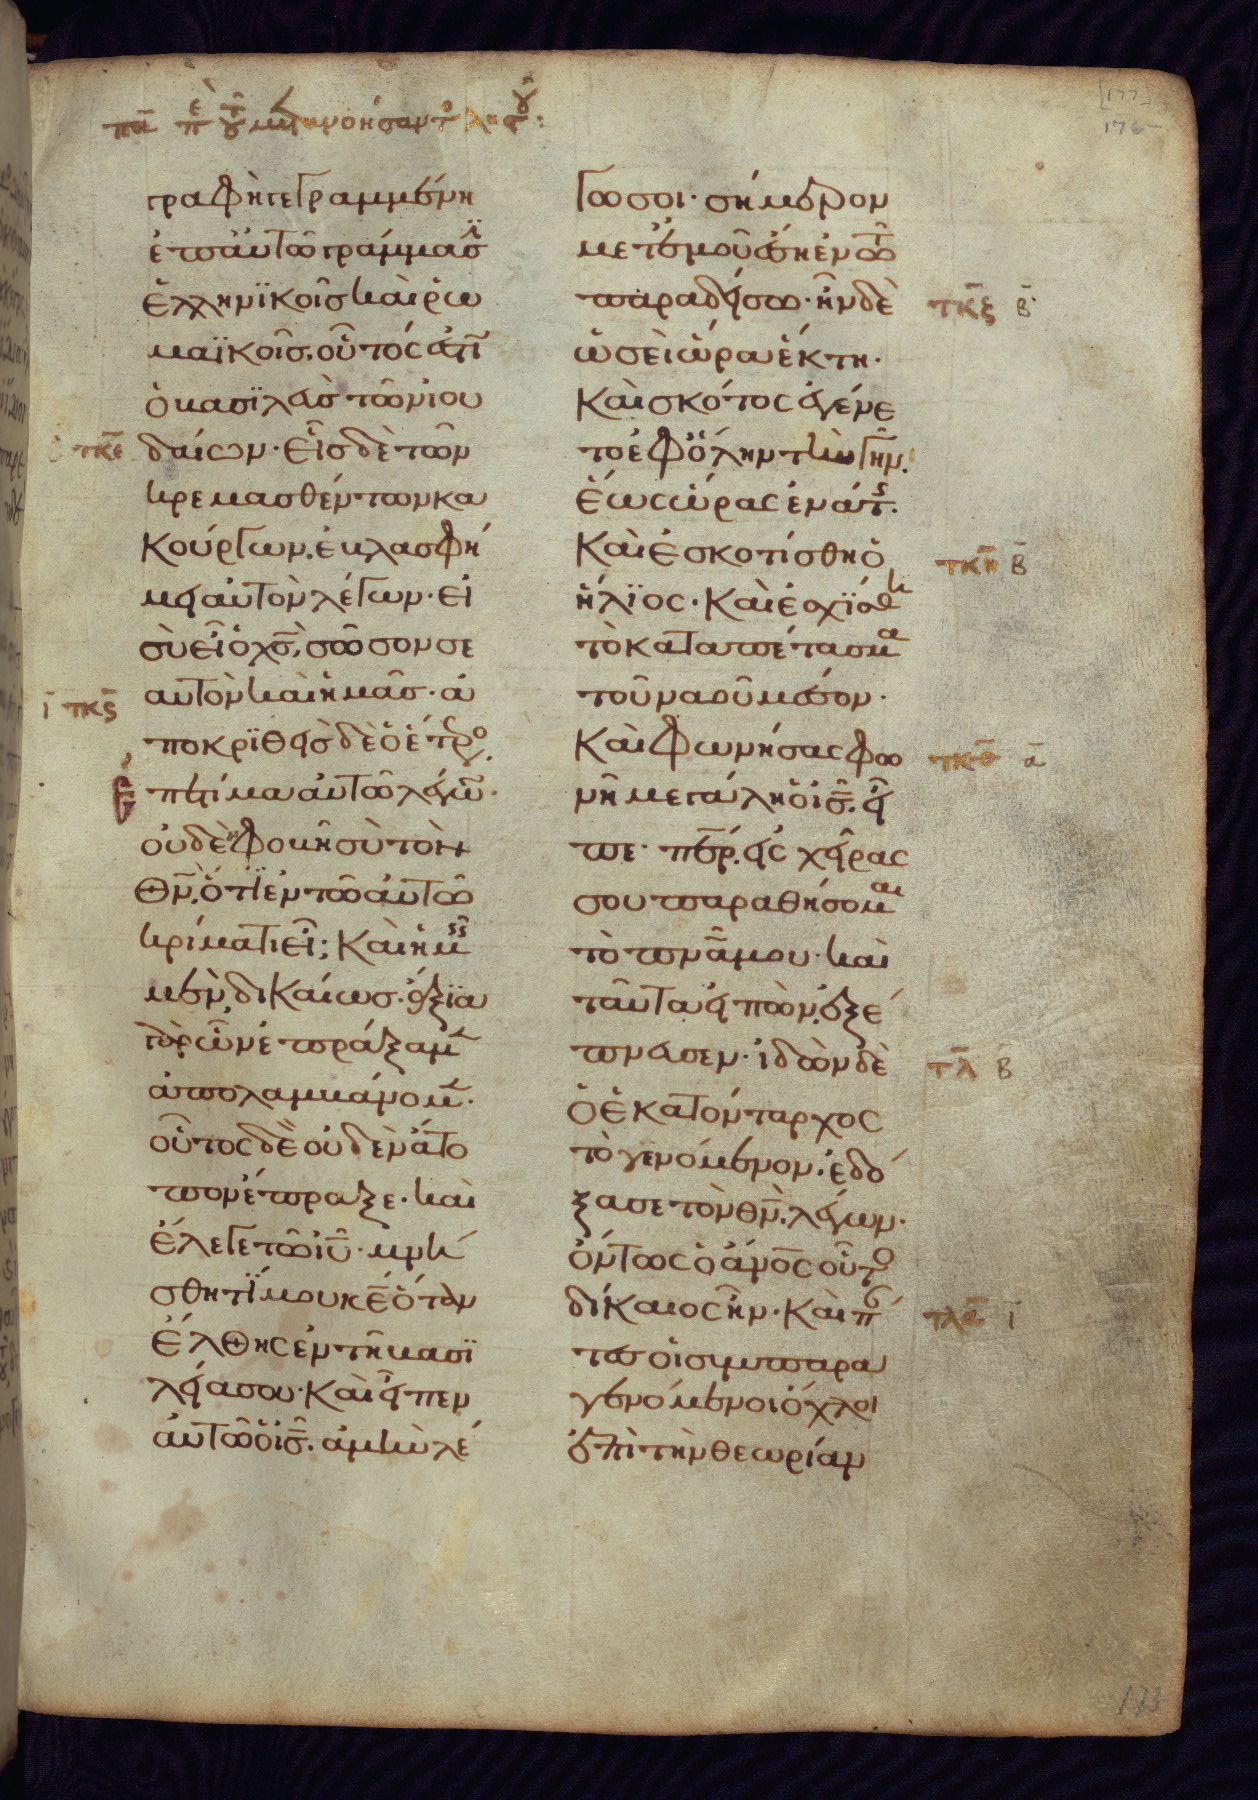 πα̅ πὲ τ̑ο̑υ μετανοήσαντο λῃστοῦ:
[177]
176
γραφὴ γεγραμμένη
ἐπ' αὐτῶ γράμμασϊ
ἑλληνϊκοῖς καὶ ῥω
μαϊκοῖς. οὗτός ἐστϊ
ὁ βασϊλεὺς τῶν ἰου
τκε̅ δαίων· εἷς δὲ τῶν
κρεμασθέντων κα
κούργων. ἐβλασφή
μει αὐτὸν λέγων· εἰ
σὺ εἶ ὁ χς̅, σῶσον σε
αυτὸν καὶ ἡμᾶς· ἀ
ι̅ τκς̅
ποκρϊθεὶς δὲ ὁ ἕτερο
ἐπετίμα αὐτῶ λέγων·
οὐδὲ φοβῆ σὺ τὸν
θν̅. ὅτϊ ἐν τῶ αὐτῶ
κρίματι εἶ; καὶ ἡμεῖς
μὲν δικαίως. ἄξϊα
γὰρ ὧν ἐπράξαμεν
ἀπολαμβάνομεν·
οὗτος δὲ οὐδὲν ἄτο
πον ἔπραξε· καὶ
ἔλεγε τῶ ιυ̅· μνή
σθητϊ μου κε̅ ὅταν
ἔλθης ἐν τῆ βασϊ
λείᾳ σου· καὶ εἶπεν
αὐτῶ ὁ ις̅. ἀμὴν λέ
γω σοι· σήμερον
μετ' ἐμοῦ ἔση ἐν τῶ
παραδείσω· ἦν δὲ τκζ̅ β̅
ὡσεὶ ὥρα ἕκτη·
καὶ σκότος ἐγένε
το ἐφ' ὅλην τὴν γῆν.
ἕως ὥρας ἐνάτης.
καὶ ἐσκοτίσθη ὁ τκη̅ β̅
ἥλϊος· καὶ ἐσχϊσθη
τὸ καταπέτασμα
τοῦ ναοῦ μέσον·
καὶ φωνήσας φω τκθ̅ α̅
νῆ μεγάλη ὁ ις̅. εἶ
πε· περ̅. εἰς χεῖρας
σου παραθήσομαι
τὸ πνα̅ μου· καὶ
ταῦτα εἰπὼν. ἐξέ
πνευσεν· ἰδὼν δὲ τλ̅ β̅
ὁ ἑκατόνταρχος
τὸ γενόμενον. ἐδό
ξασε τὸν θν̅. λέγων·
ὄντως ὁ ἀνος̅ οὗτο
δίκαιος ἦν· καὶ πάν τλα̅ ι̅
τες οἱ συμπαρα
γενόμενοι ὄχλοι
ἐπὶ τὴν θεωρίαν
173